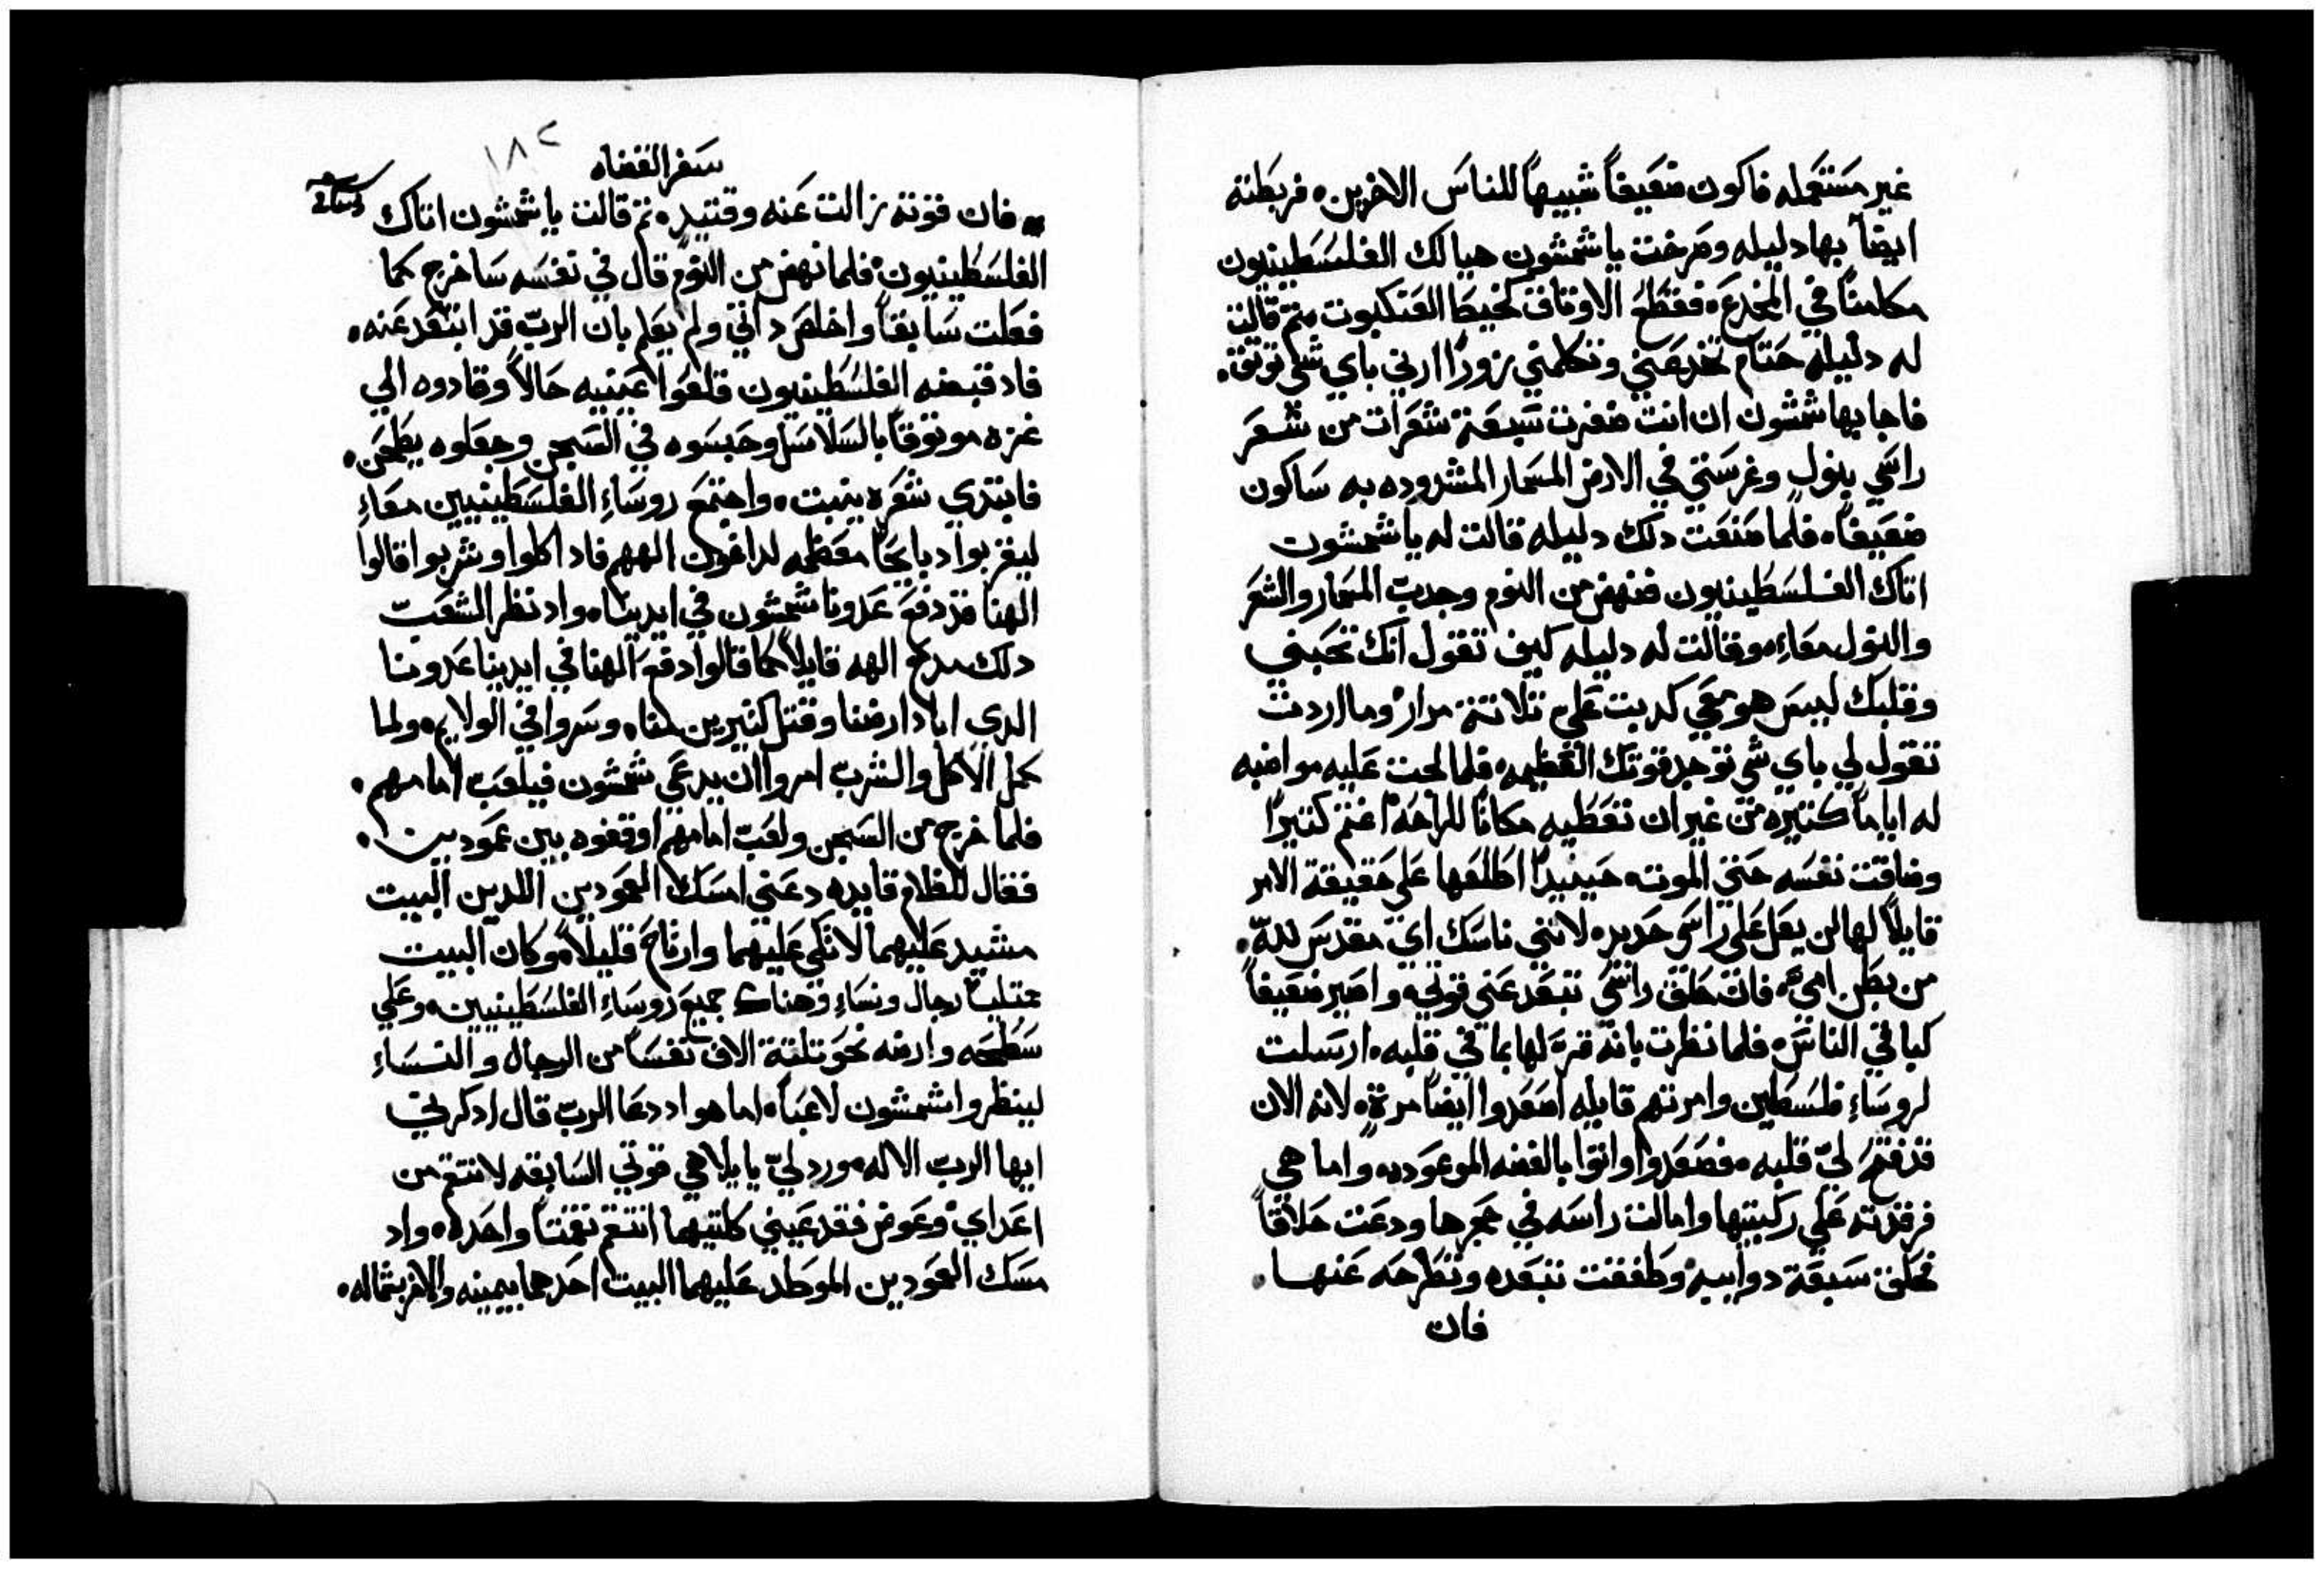 غير مستعمله فاكون ضعيفاً شبيهاً للناس الاخرين. فربطته
ايضاً بها دليله وصرخت ياشمشون هيا لك الفلسطينيون
مكامناً في المخدع. فقطع الاوثاق كخيط العنكبوت. ثم قالت
له دليله حتام تخدعني وتكلمني زوراً ارني باي شي توثق.
فاجابها شمشون ان انت ضفرت سبعة شعرات من شعر
راسي بنولٍ وغرستي في الارض المسمار المشدوده به ساكون
ضعيفاً. فلما صنعت دلك دليله قالت له ياشمشون
اتاك الفلسطينيون فنهض من النوم وجدب المسمار والشعر
والنول معاءِ. وقالت له دليله كيف تقول انك تحبني
وقلبك ليس هو معي كدبت علي ثلاثة مرار وما اردت
تقول لي باي شي توجد قوتك العظيمه. فلما لجت عليه مواضبه
له اياماً كتيره من غير ان تعطيه مكاناً للراحه اغتم كتيراً
وضاقت نفسه حتي الموت. حينيداً اطلعها علي حقيقة الامر
قايلاً لها لن يعل علي راسي حديد. لانني ناسك اي مقدس لله.
من بطن امي. فان حلق راسي تبعد عني قوتي. واصير ضعيفاً
كباقي الناس. فلما نظرت بانه قر لها بما في قلبه. ارسلت
لروساءِ فلسطين وامرتهم قايله اصعدوا ايضاً مرةٍ. لانه الان
قد فتح لي قلبه. فصعدوا واتوا بالفضه الموعوده. واما هي
فرقدته علي ركبتيها وامالت راسه في حجرها ودعت حلاقاً
فحلق سبعة دوايبه. وطفقت تبعده وتطرحه عنها.
فان
سفر القضاه
١٨٢
فان قوته زالت عنه وقتيدٍ. ثم قالت ياشمشون اتاك
الفلسطينيون. فلما نهض من النوم قال في نفسه ساخرج كما
فعلت سابقاً واخلص داتي ولم يعلم بان الرب قد ابتعد عنه.
فاد قبضه الفلسطينيون قلعوا عينيه حالاً وقادوه الي
غزه موثوقاً بالسلاسل وحبسوه في السجن وجعلوه يطحن.
فابتدي شعره ينبت. واجتمع روساءِ الفلسطينيين معاءِ
ليقربوا دبايحاً معظمه لداغون الههم فاد اكلوا وشربوا قالوا
الهنا قد دفع عدونا شمشون في ايدينا. واد نظر الشعب
دلك مدح الهه قايلاً كما قالوا دفع الهنا في ايدينا عدونا
الدي اباد ارضنا وقتل كتيرين منا. وسروا في الولايم. ولما
كمل الاكل والشرب امروا ان يدعي شمشون فيلعب امامهم.
فلما خرج من السجن ولعب امامهم اوقفوه بين عمودين.
فقال للغلام قايده دعني امسك العمودين اللدين البيت
مشيد عليهما لاتكي عليهما وارتاح قليلاً. وكان البيت
ممتلياً رجال ونساءِ وهناك جميع روساءِ الفلسطينيين. وعلي
سطحه وارضه نحو تلتة الاف نفساً من الرجال والنساءِ
لينظروا شمشون لاعباً. اما هو اد دعا الرب قال ادكرني
ايها الرب الاله. ورد لي يايلاهي قوتي السابقه لانتقم من
اعداي. وعوض فقد عيني كلتيهما انتقم نقمتاً واحده. واد
مسك العمودين الموطد عليهما البيت احدهما بيمينه والاخر بشماله.